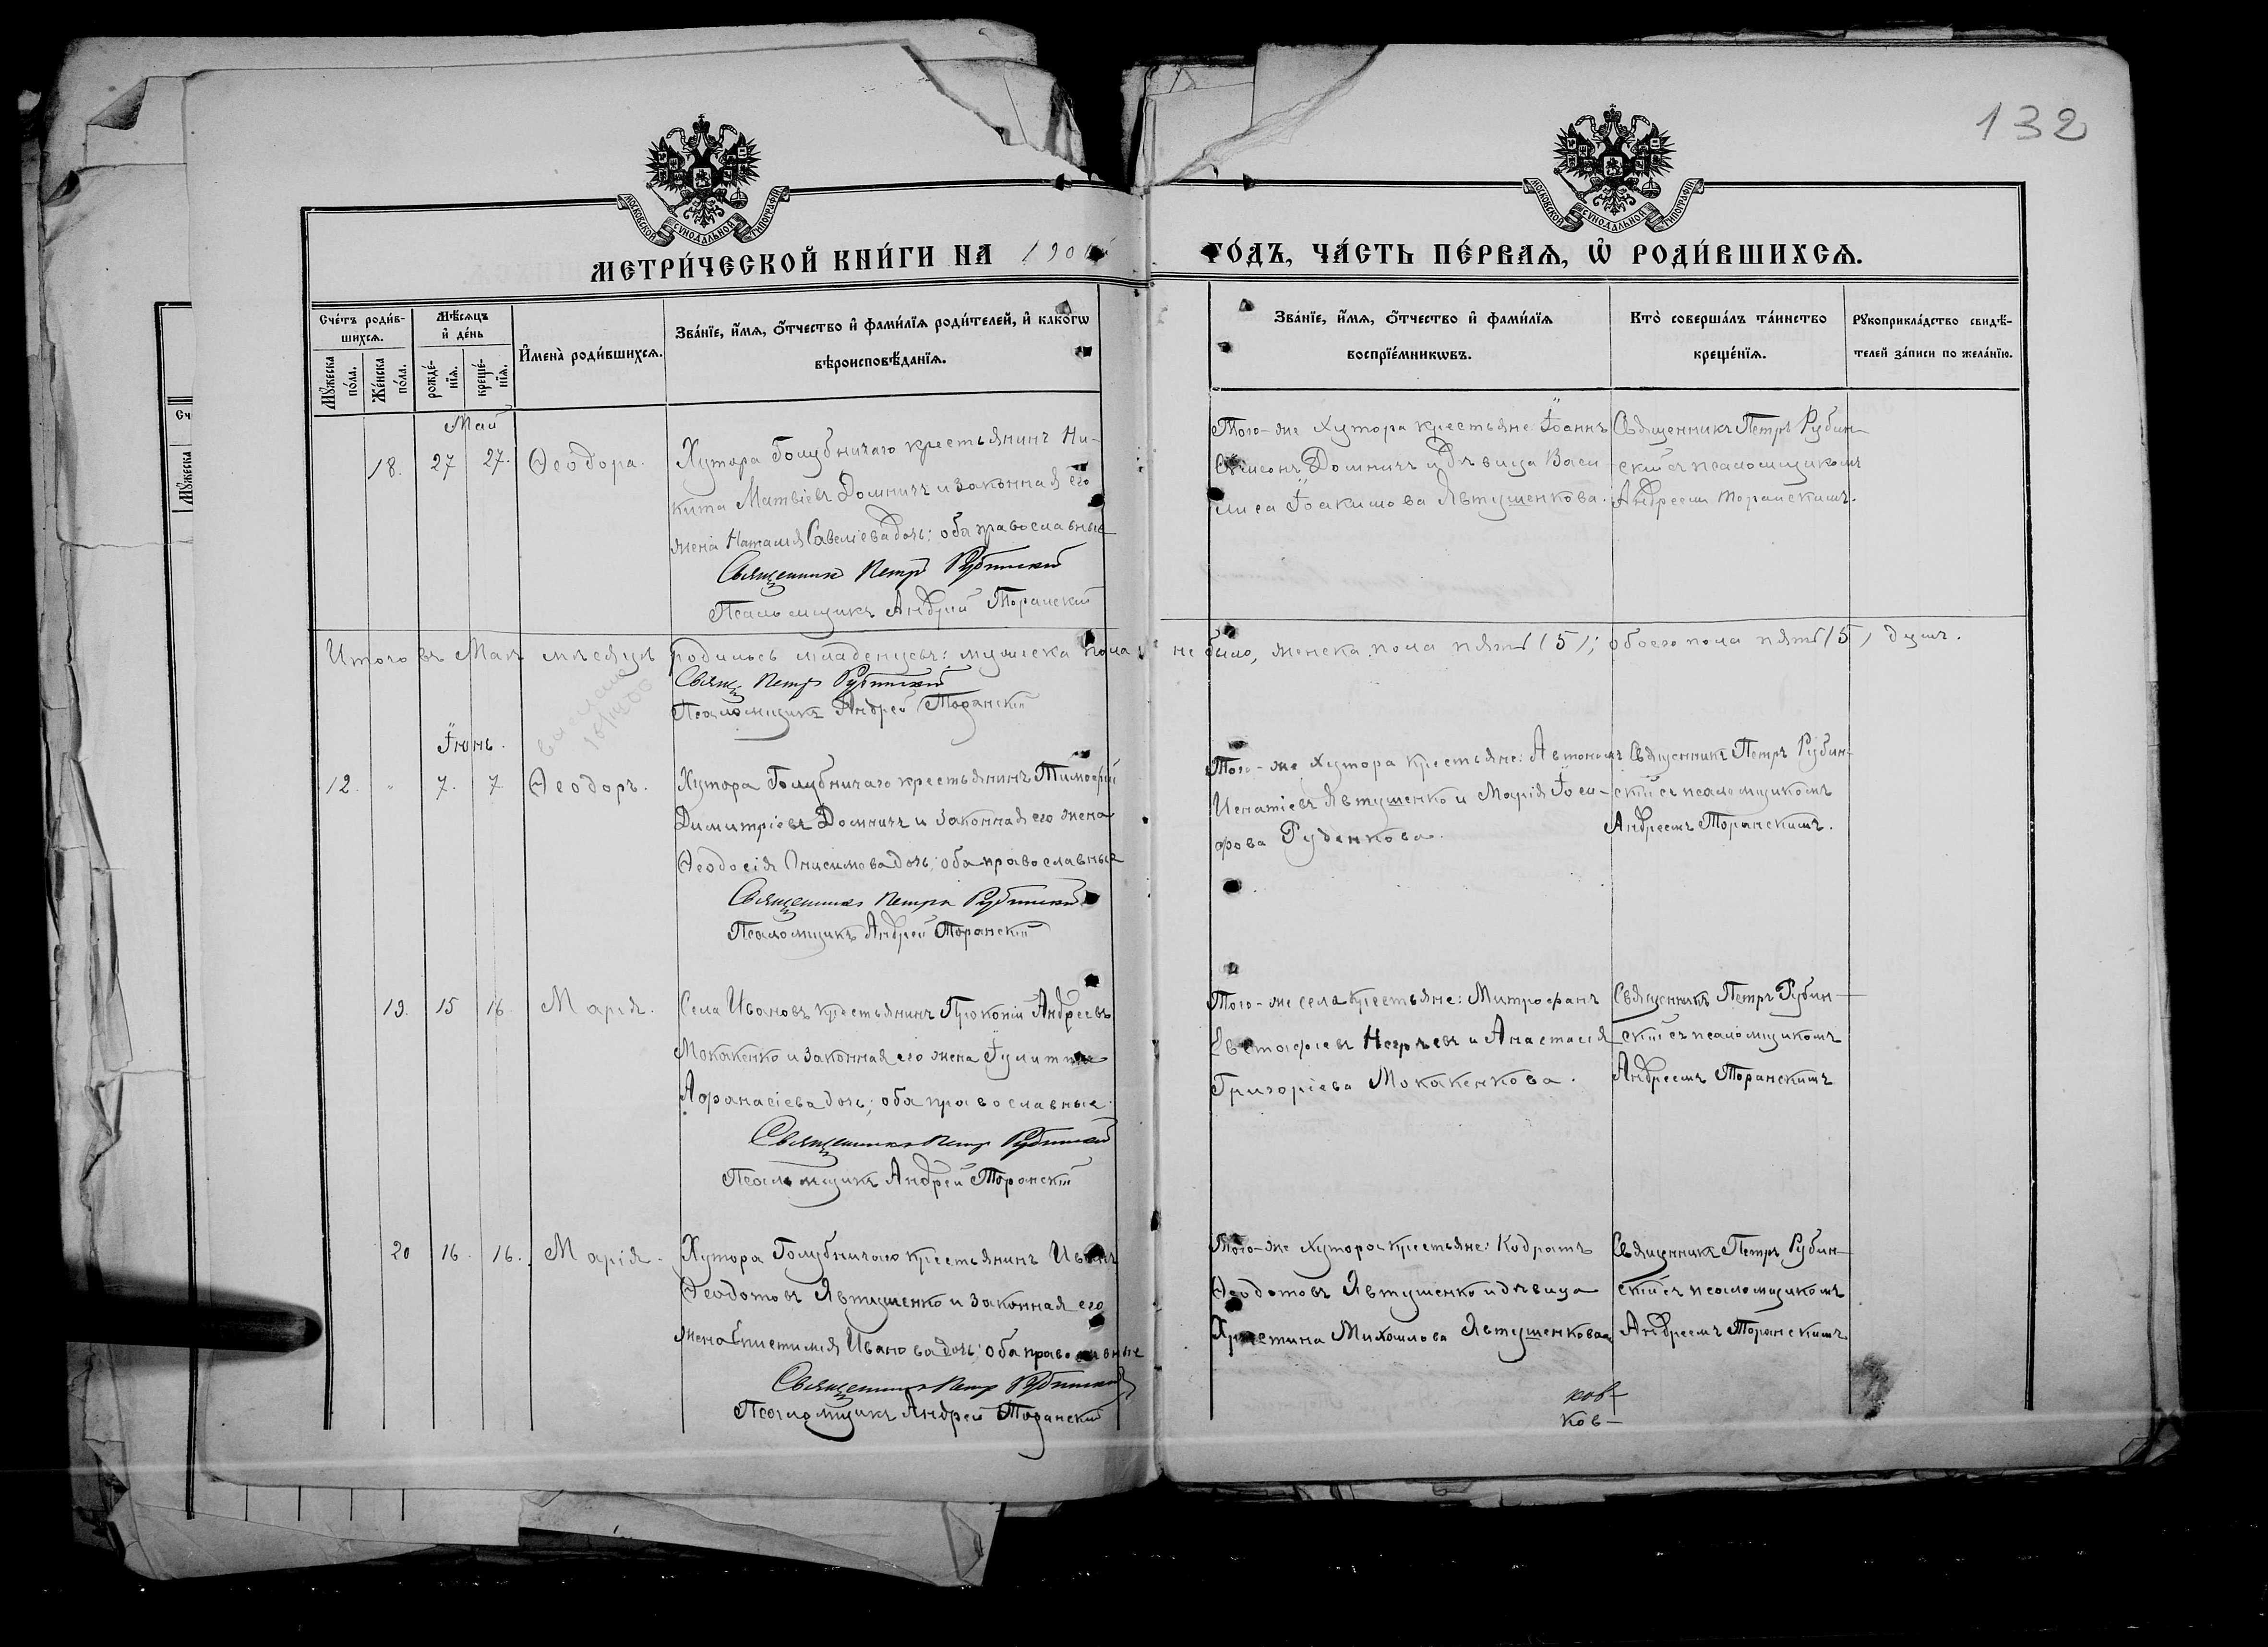 132
МОСКОВСКОЙ СѴНОДАЛЬНОЙ ТИПОГРАФІИ
МОСКОВСКОЙ СѴНОДАЛЬНОЙ ТИПОГРАФІИ
МЕТРИ́ЧЕСКОЙ КНИ́ГИ НА 190
ГО́ДЪ, ЧА́СТЬ ПЕ́РВАѦ, Ѡ҆ РОДИ́ВШИХСѦ.
Сче́тъ роди́в-
шихсѧ.
Мꙋ́жеска
по́ла.
Же́нска
по́ла.
Мѣ́сѧцъ
и҆ де́нь
рожде́-
нїѧ.
креще́-
нїѧ.
И҆мена̀ роди́вшихсѧ.
Зва́нїе, и҆́мѧ, ѻ҆́тчество и҆ фами́лїѧ роди́телей, и҆ како́гѡ
вѣроисповѣ́данїѧ.
Зва́нїе, и҆́мѧ, ѻ҆́тчество и҆ фами́лїѧ
воспрїе́мникѡвъ.
Кто̀ соверша́лъ та́инство
креще́нїѧ.
Рꙋкоприкла́дство свидѣ́-
телей за́писи по жела́нїю.
Сч
Мꙋжеска
Май
18. 27 27. Ѳеодора.
Хутора Голубничаго крестьянинъ Ни-
кита Матвіевъ Домничъ и законная его
жена Наталія Савеліева дочь; оба православные
Священникъ Петръ Рубинскій
Псаломщикъ Андрей Торанскій
Того-же хутора крестьяне: Іоаннъ
Домничъ и дѣвица Васи-
лиса Іоакимова Явтушенкова.
Священникъ Петръ Рубин-
скій съ псаломщикомъ
Андреемъ Торанскимъ.
Итого въ Маѣ мѣсяцѣ родилось младенцевъ: мужеска пола не было, женска пола пять (5); обоего пола пять (5) душъ.
Свящ. Петръ Рубинскій
Псаломщикъ Андрей Торанскій
Іюнь.
12. " 7. 7 Ѳеодоръ.
Хутора Голубничаго крестьянинъ Тимоѳей
Димитріевъ Домничъ и законная его жена
Ѳеодосія Онисимова дочь; оба православные
Священникъ Петръ Рубинскій
Псаломщикъ Андрей Торанскій
Того-же хутора крестьяне: Автономъ
Игнатіевъ Явтушенко и Марія Іоси-
фова Руденкова.
Священникъ Петръ Рубин-
скій съ псаломщикомъ
Андреемъ Торанскимъ.
19. 15 16. Марія.
Села Ивановъ крестьянинъ Прокопій Андреевъ
Мокакенко и законная его жена Іулитта
Афанасіева дочь; оба православные.
Священникъ Петръ Рубинскій
Псаломщикъ Андрей Торанскій
Того-же села крестьяне: Митрофанъ
Евстафіевъ и Анастасія
Григоріева Мокакенкова.
Священникъ Петръ Рубин-
скій съ псаломщикомъ
Андреемъ Торанскимъ
20 16. 16. Марія.
Хутора Голубничаго крестьянинъ Иванъ
Ѳеодотовъ Явтушенко и законная его
жена Епистимія Иванова дочь; оба православные
Священникъ Петръ Рубинскій
Псаломщикъ Андрей Торанскій
Того-же хутора крестьяне: Кодратъ
Ѳеодотовъ Явтушенко и дѣвица
Христина Михаилова Явтушенкова
Священникъ Петръ Рубин-
скій съ псаломщикомъ
Андреемъ Торанскимъ
ков-
ков-